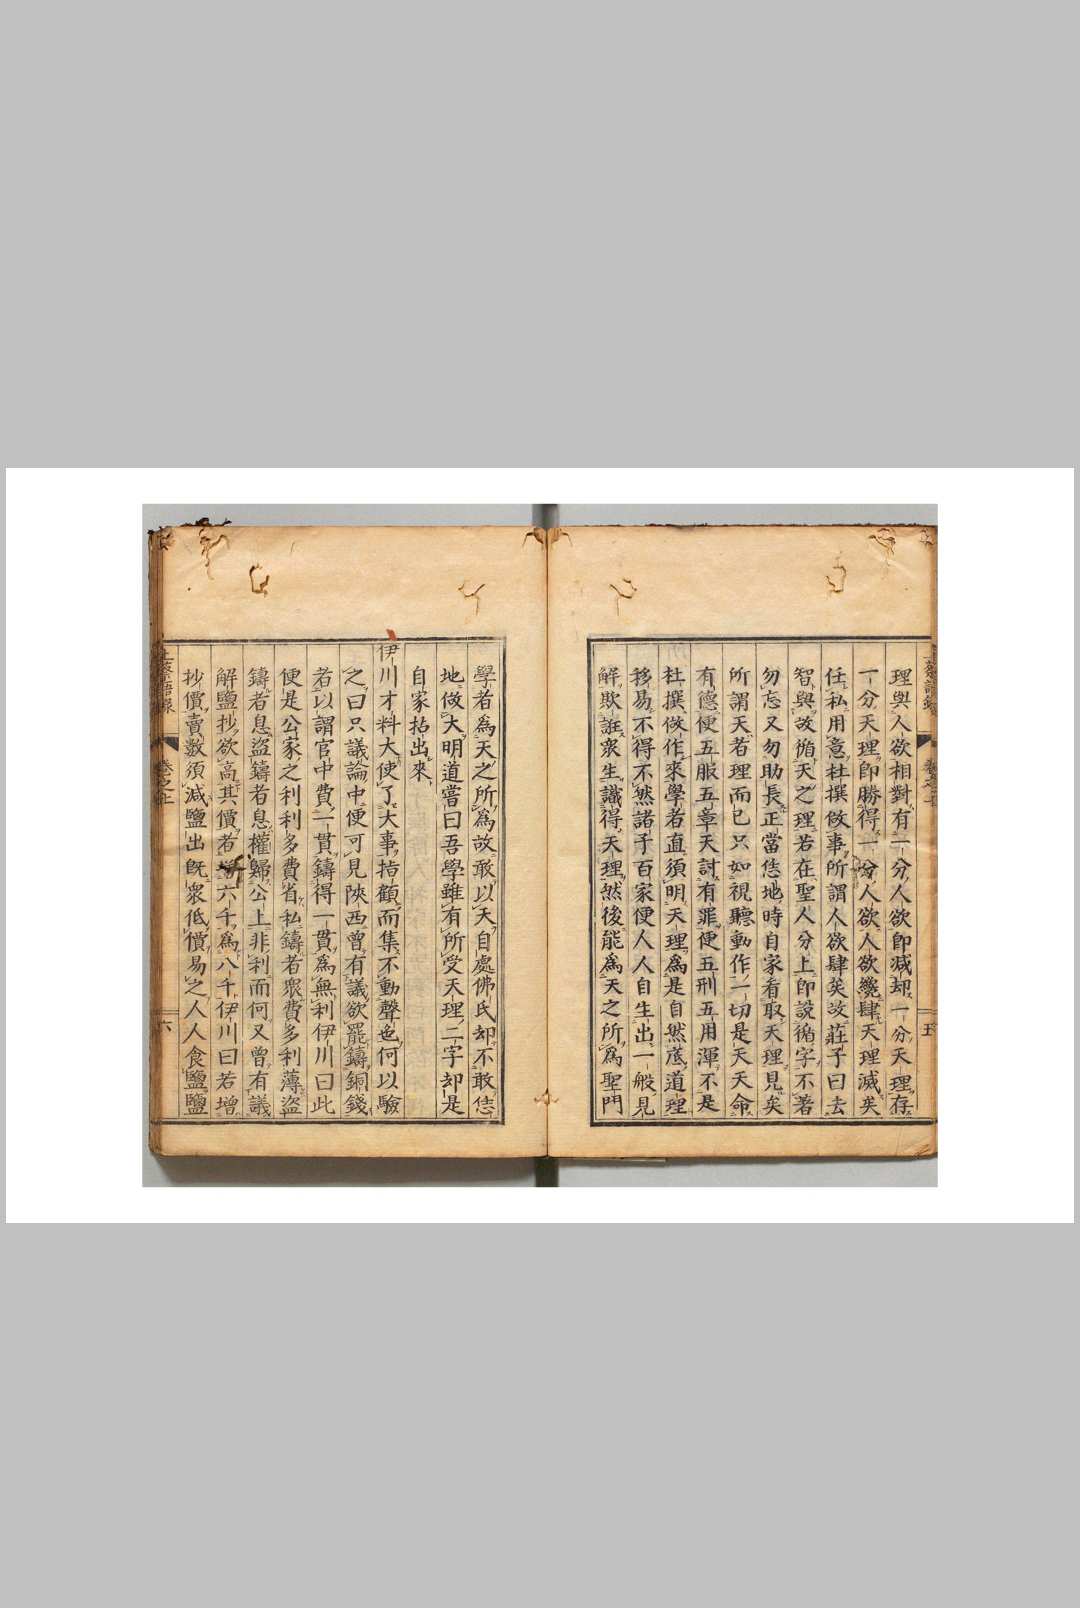 理與人欲相對有一分人欲卽減却一分天理存
一分天理卽勝得一分人欲人欲纔肆天理滅矣
任私用意杜撰做事所謂人欲肆矣故莊子曰去
智與故循天之理若在聖人分上卽說循字不著
勿忘又勿助長正當恁地時自家看取天理見矣
所謂天者理而已只如視聽動作一切是天天命
有德便五服五章天討有罪便五刑五用渾不是
杜撰做作來學者直須明天理爲是自然底道理
移易不得不然諸子百家便人人自生出一般見
解欺誑衆生識得天理然後能爲天之所爲聖門
學者爲天之所爲故敢以天自處佛氏却不敢恁
地做大明道嘗曰吾學雖有所受天理二字却是
自家拈出來
伊川才料大使了大事指顧而集不動聲色何以驗
之曰只議論中便可見陝西曾有議欲罷鑄銅錢
者以謂官中費一貫鑄得一貫爲無利伊川曰此
便是公家之利利多費省私鑄者衆費多利薄盜
鑄者息盜鑄者息權歸公上非利而何又曾有議
解鹽抄欲高其價者增六千爲八千伊川曰若增
抄價賣數須減鹽出旣衆低價易之人人食鹽鹽
上蔡語錄
卷之上
五
上蔡語錄
卷之上
六